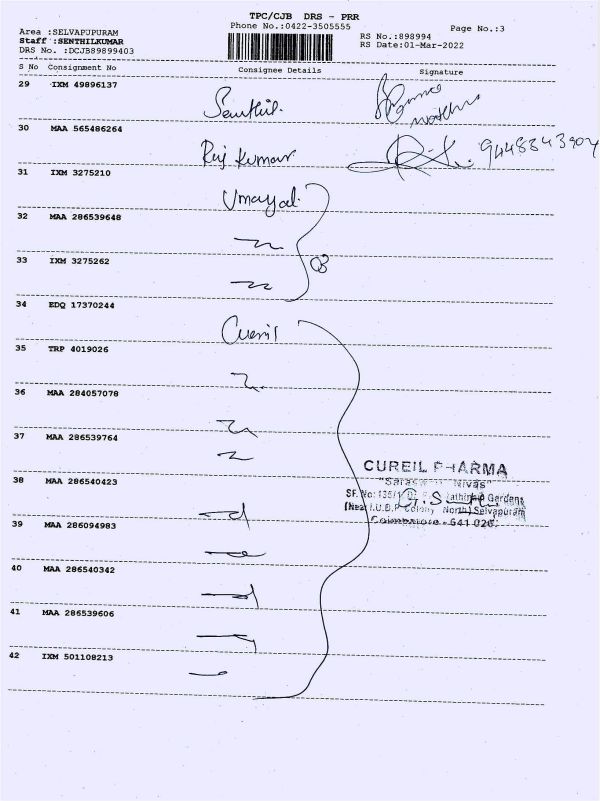 TPC/CJB DRS - PRR
Phone No.:0422-3505555
Page No.:3
Area :SELVAPUPURAM
Staff :SENTHILKUMAR
DRS No. :DCJB89899403
RS No.:898994
RS Date:01-Mar-2022
S No Consignment No Consignee Details Signature
29 IXM 49896137
Senthil.
30 MAA 565486264
Raj Kumar 9448843904
31 IXM 3275210
Umayal.
32 MAA 286539648
33 IXM 3275262
34 EDQ 17370244
Cureil
35 TRP 4019026
36 MAA 284057078
37 MAA 286539764
CUREIL PHARMA
38 MAA 286540423
"Nivas"
SF.No: Gardens
Colony North) Selvapuram
39 MAA 286094983
Coimbatore - 641 026.
40 MAA 286540342
41 MAA 286539606
42 IXM 501108213